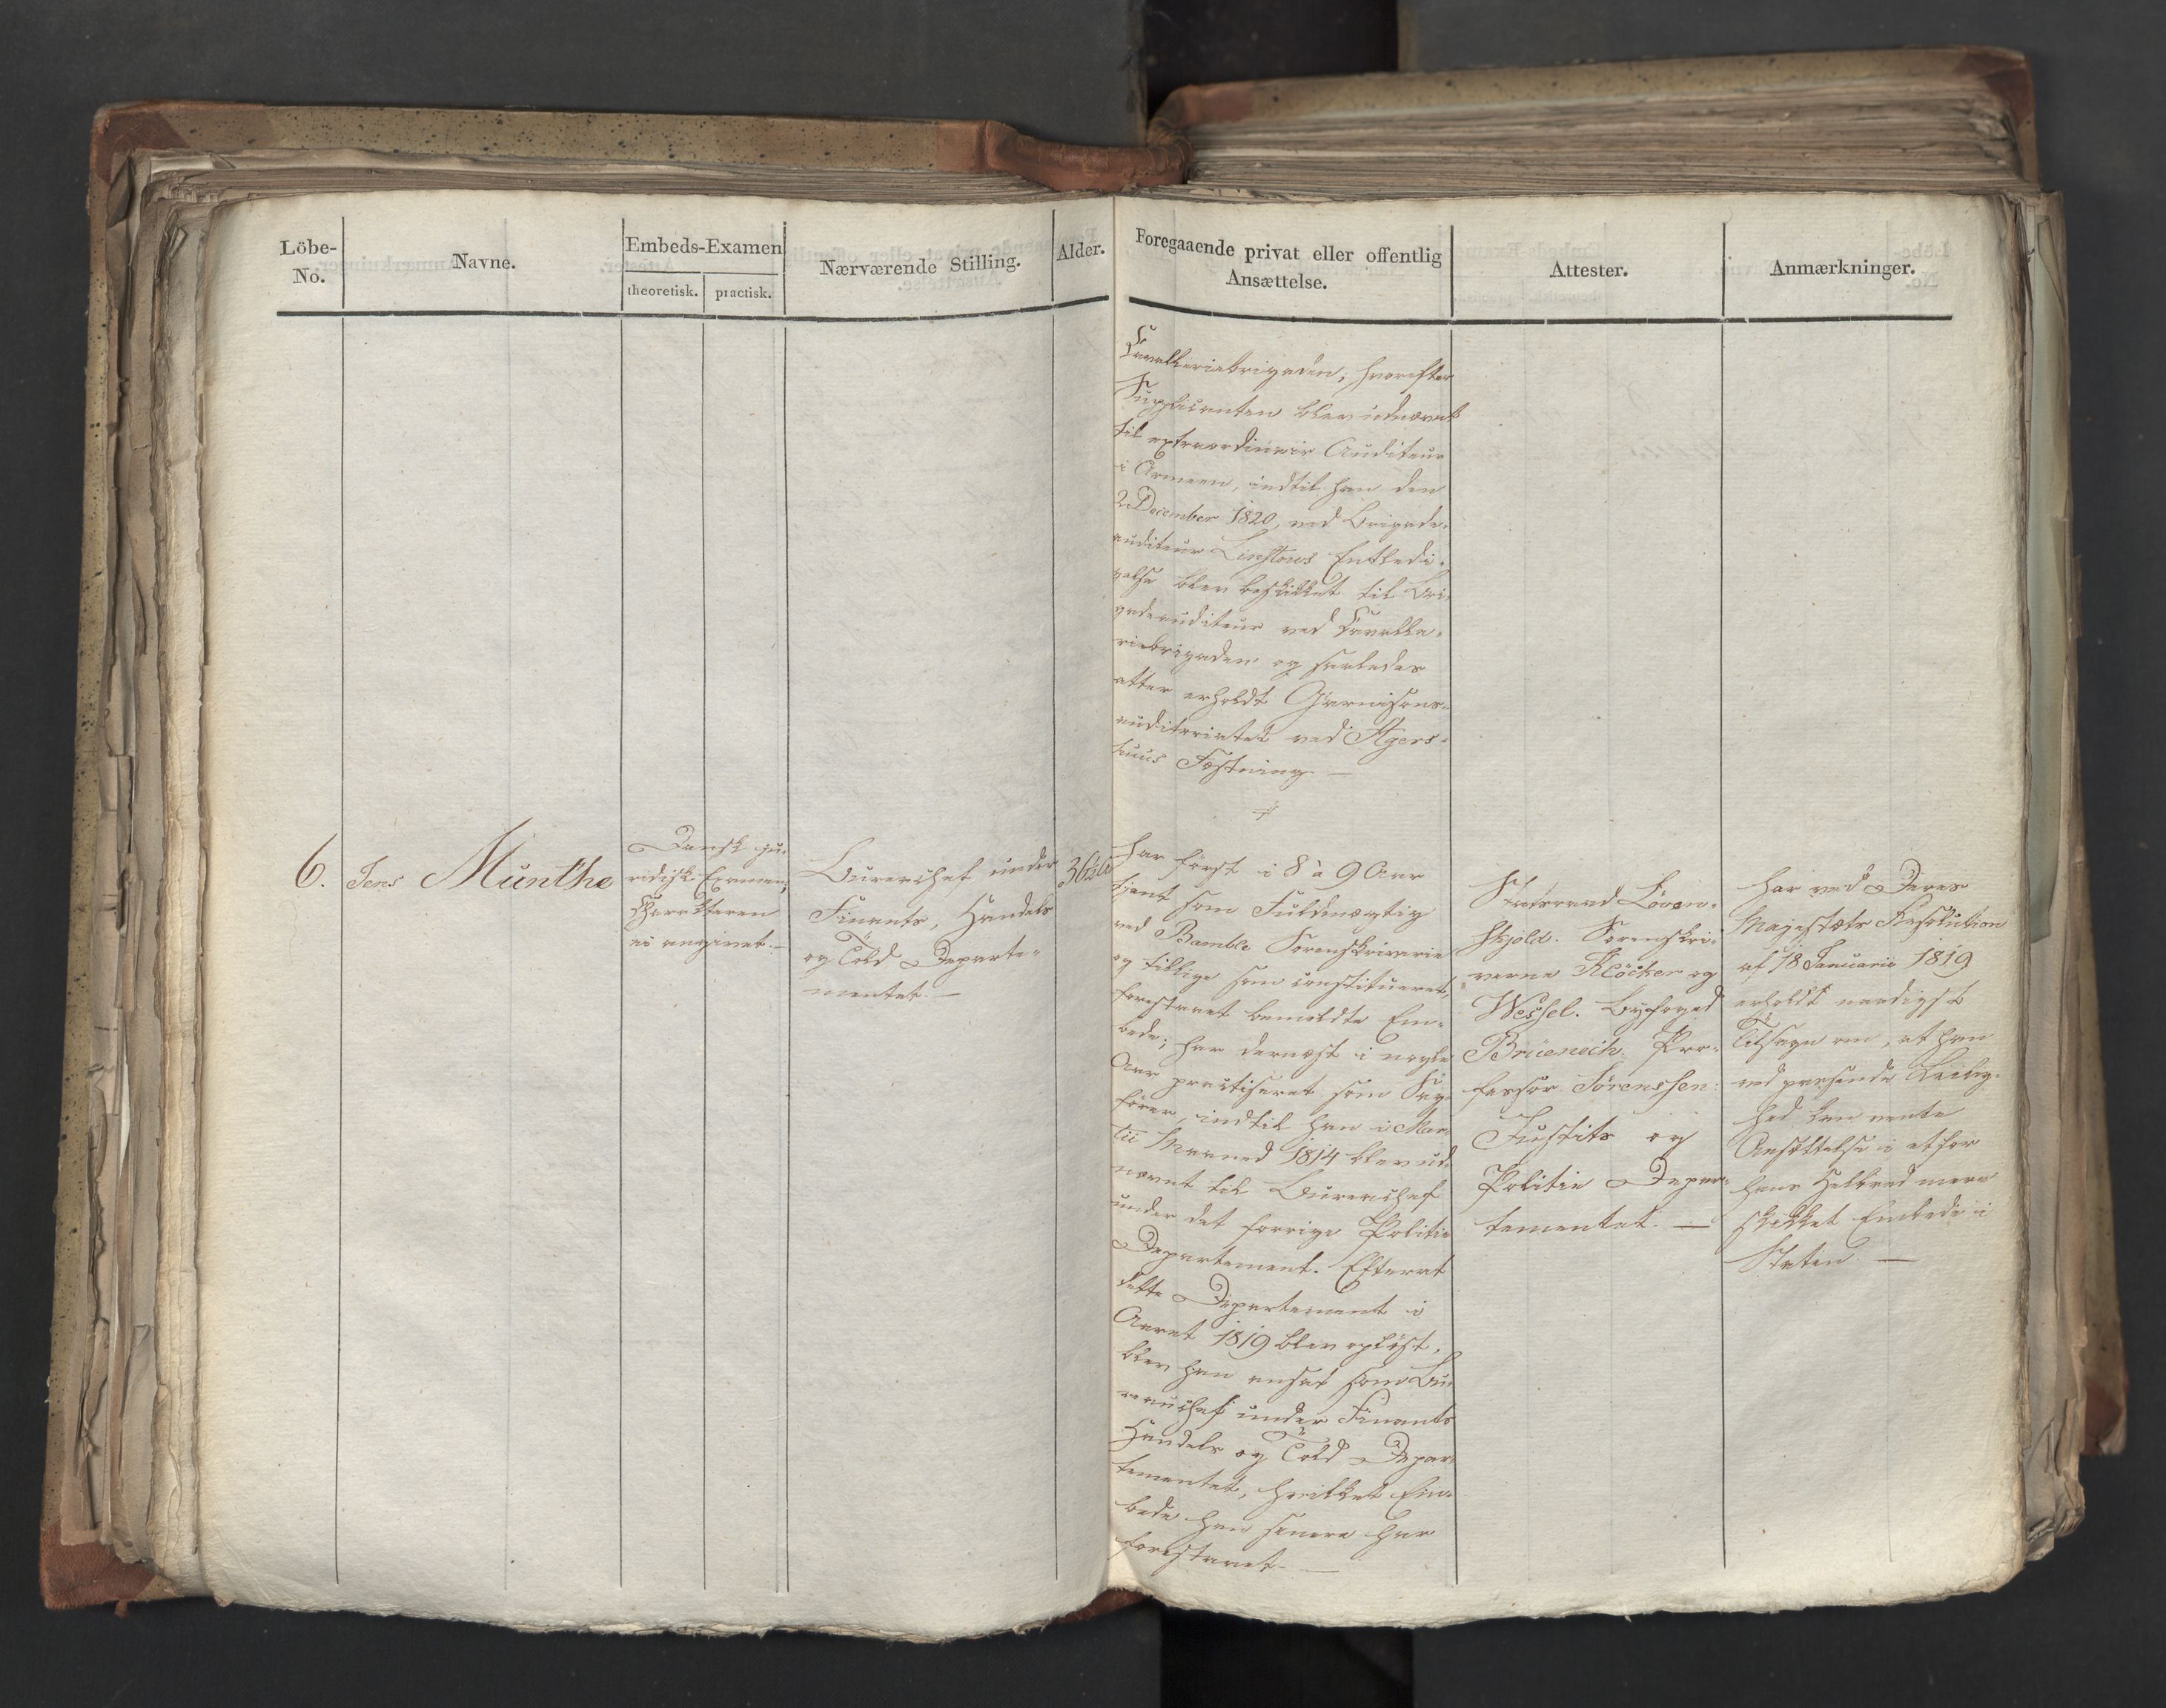 Löbe-
No.
Navne.
Embeds-Examen
theoretisk.
practisk.
Nærværende Stilling.
Alder.
Foregaaende privat eller offentlig
Ansættelse.
Attester.
Anmærkninger.
Cavalleriebrigaden; hvorefter
Supplicanten blev udnævnt
til extraordinair Auditeur
i Armeen, indtil han den
2 December 1820, ved Brigade-
auditeur Linstows Entledi-
gelse blev beskikket til Bri-
gadeauditeur ved Cavalle-
riebrigaden og saaledes
atter erholdt Garnisons-
auditoriatet ved Agers-
huus Fæstning. —
6.
Jens Münthe
Dansk ju-
ridisk Examen,
Characteren
ei angivet. —
Bureauchef under
Finants, Handels
og Told Departe-
mentet. —
36½
har först i 8 à 9 Aar
tjent som Fuldmægtig
ved Bamble Sorenskriverie
og tillige som constitueret,
forestaaet bemeldte Em-
bede; har dernæst i nogle
Aar practiseret som Sag-
förer, indtil han i Mar-
tii Maaned 1814 blev ud-
nævnt til Bureauchef
under det forrige Politie
Departement. Efterat
dette Departement i
Aaret 1819 blev oplöst,
blev han ansat som Bu-
reauchef under Finants
Handels og Told Depar-
tementet, hvilket Em-
bede han senere har
forestaaet. —
Statsraad Löven-
skjold. Sorenskri-
verne Klöcker og
Wessel. Byfoged
Brüenech. Pro-
fessor Sörenssen.
Justits og
Politie Depar-
tementet. —
har ved Deres
Majestæts Resolution
af 18 Januarii 1819
erholdt naadigst
Tilsagn om, at han
ved passende Leilig-
hed kan vente
Ansættelse i et for
hans Helbred mere
skikket Embede i
Staten. —